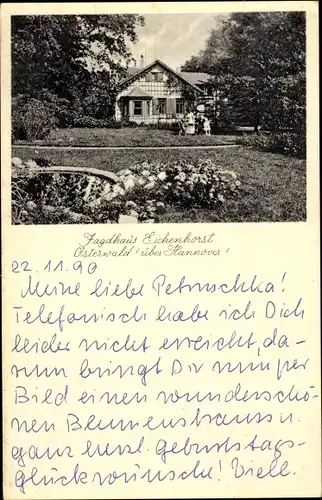 Jagdhaus Eichenhorst
Osterwald (über Hannover)
22.11.90
Meine liebe Petruschka!
Telefonisch habe ich Dich
leider nicht erreicht, da-
rum bringt Dir nun per
Bild einen wunderschö-
nen Blumenstrauss u.
ganz herzl. Geburtstags-
glückwünsche! Viell.